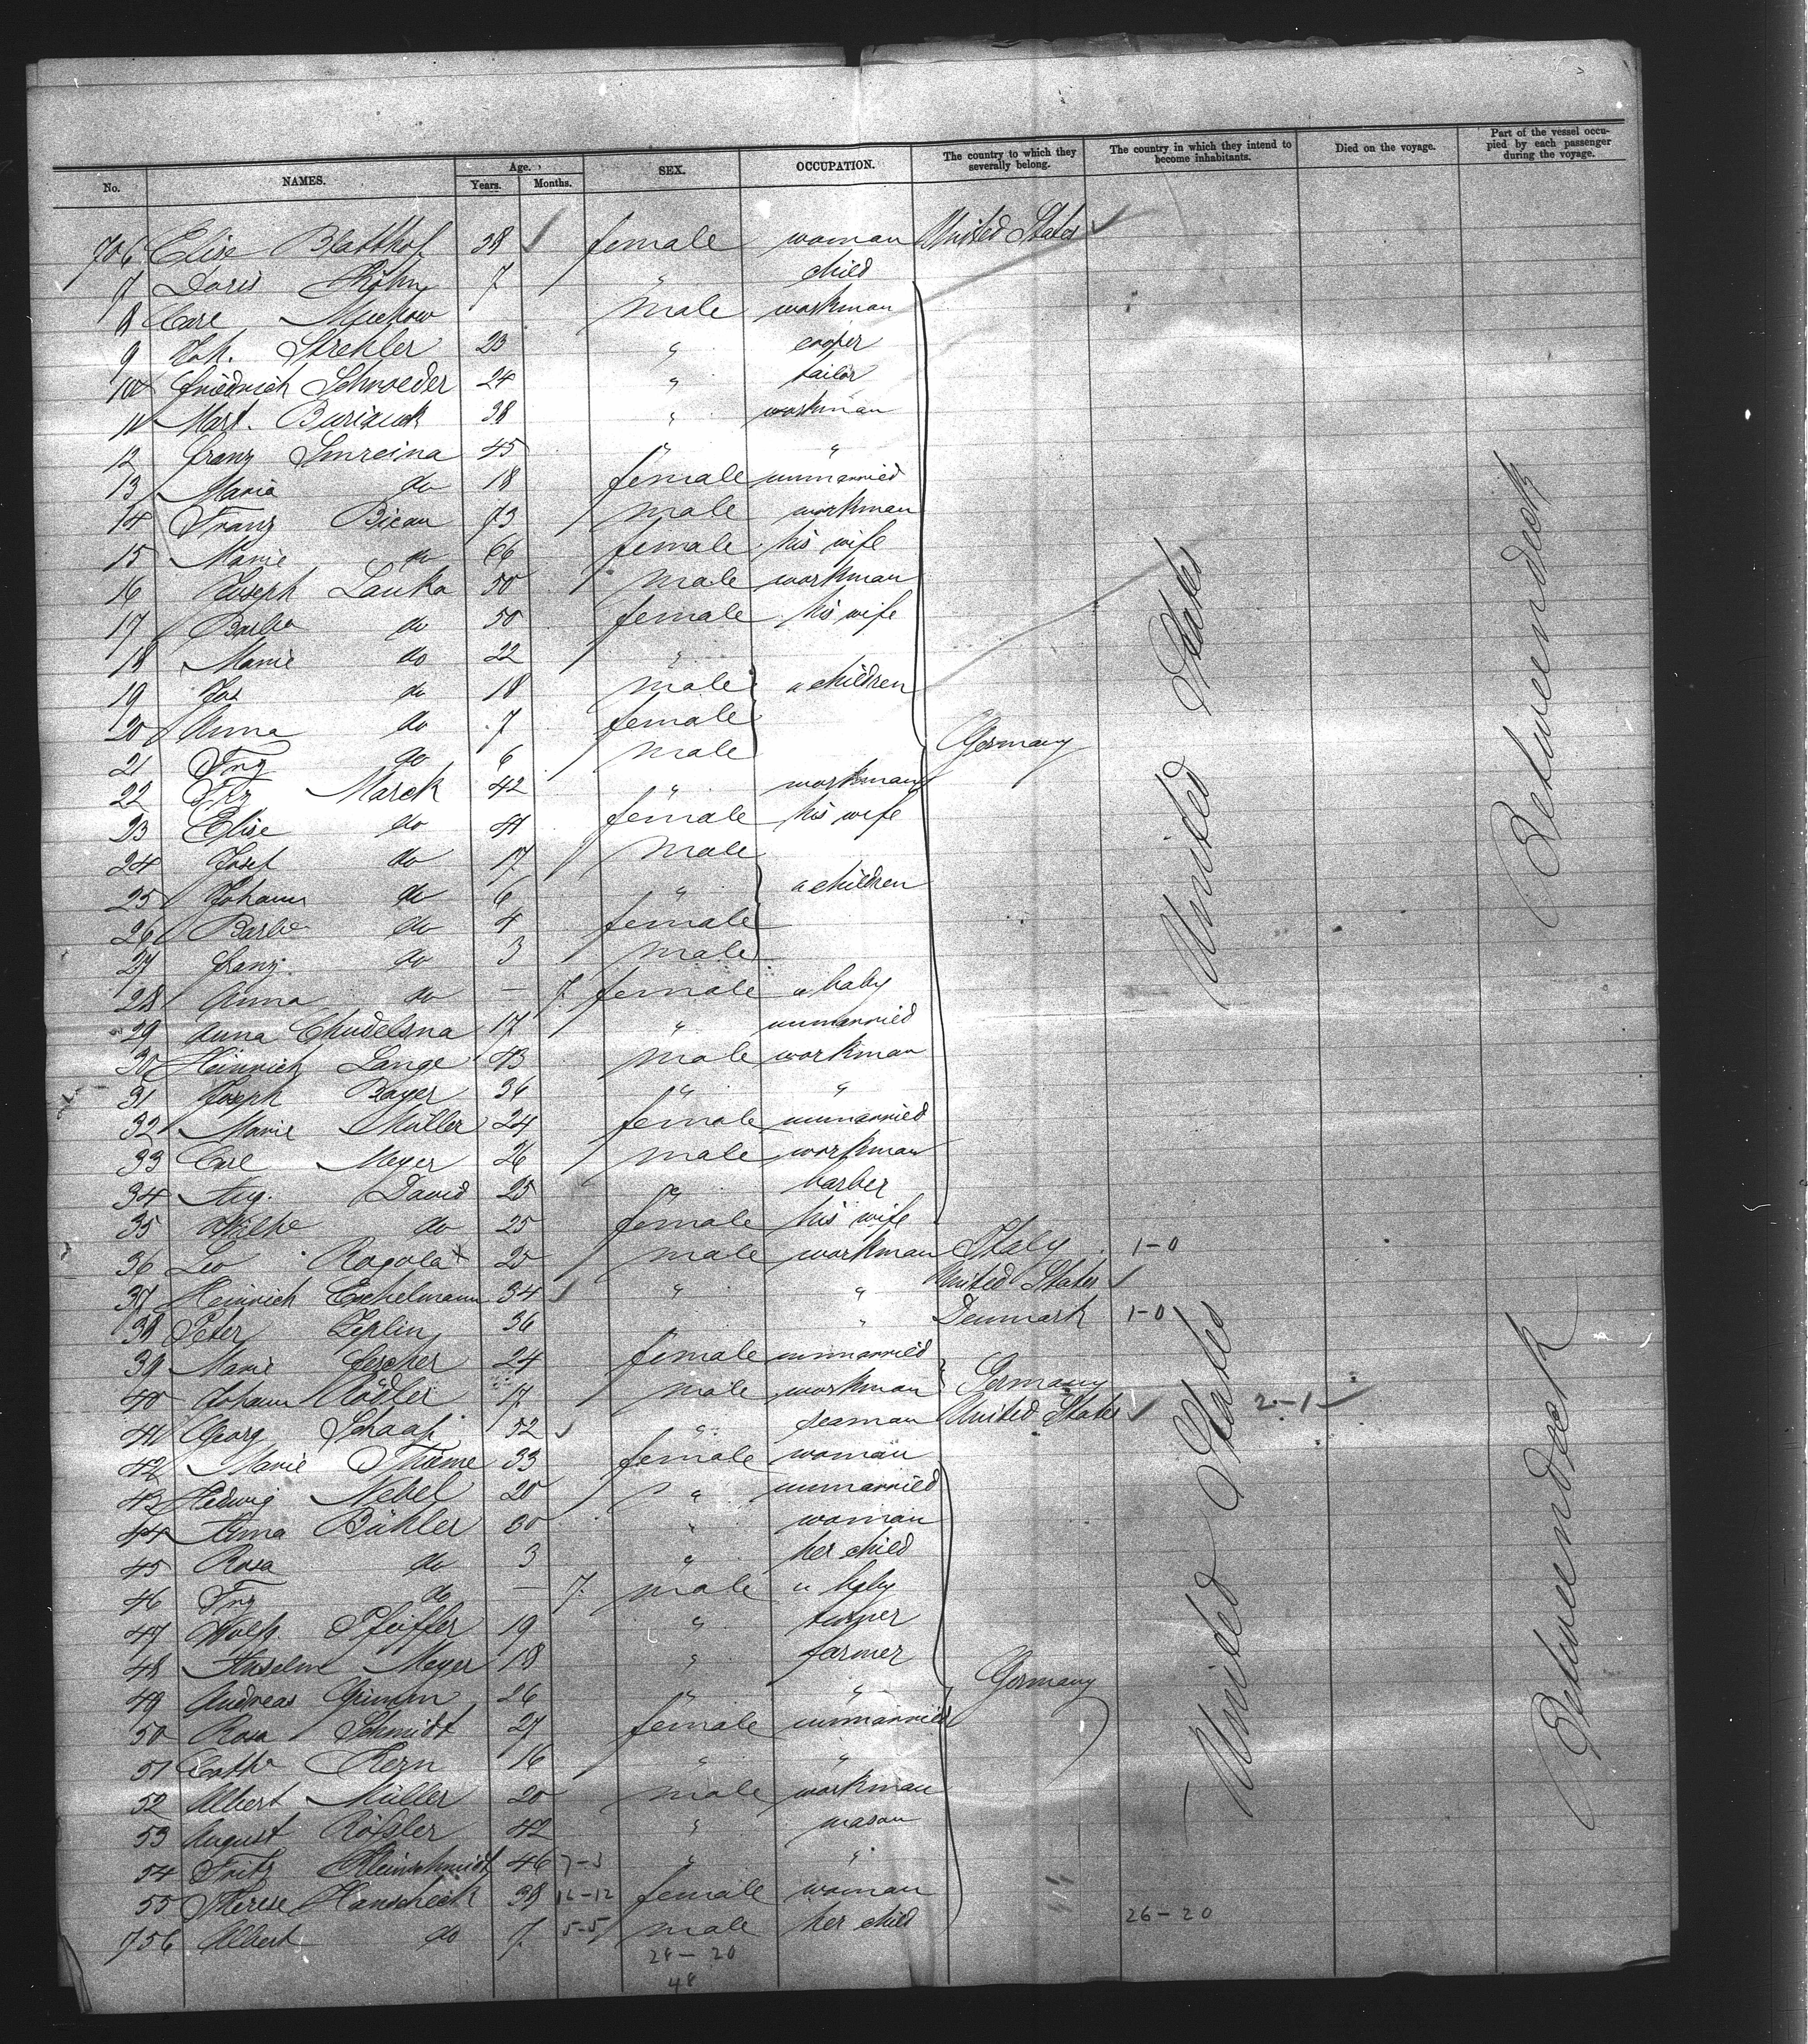 No. NAMES. Age. Years. Months. SEX. OCCUPATION. The country to which they severally belong. The country in which they intend to become inhabitants. Died on the voyage. Part of the vessel occupied by each passenger during the voyage.
706 Elise Blatthof 38 female woman United States
7 Doris Köhn 7 " child
8 Carl Muchow male workman
9 Joh. Strehler 23 " cooper
10 Friedrich Schroeder 24 " tailor
11 Mart. Burianek 38 " workman
12 Franz Smreina 45 " "
13 Maria do 18 female unmarried
14 Franz Bican 73 male workman
15 Marie do 66 female his wife
16 Joseph Lauka 50 male workman
17 Barba do 50 female his wife
18 Marie do 22 "
19 Jos do 18 male children
20 Anna do 7 female
21 Frz do 6 male Germany
22 Frz Marek 42 " workman
23 Elise do 41 female his wife
24 Josef do 17 male
25 Johann do 6 " children
26 Barba do 4 female
27 Franz do 3 male
28 Anna do — 7 female a baby
29 Anna Chudelsna 17 " unmarried
30 Heinrich Lange 43 male workman
31 Joseph Bayer 36 " "
32 Marie Müller 24 female unmarried
33 Carl Meyer 26 male workman
34 Aug. David 25 " barber
35 Wilhe do 25 female his wife
36 Leo Rogola 25 male workman Italy 1-0
37 Heinrich Eschelmann 34 " " United States
38 Peter Zeplin 36 " Denmark 1-0
39 Marie Lercher 24 female unmarried
40 Johann Rödler 17 male workman Germany
41 Georg Schaaf 52 " seaman United States 2-1
42 Marie Thieme 33 female woman
43 Hedwig Nebel 20 " unmarried
44 Anna Bühler 30 " woman
45 Rosa do 3 " her child
46 Frz do — 7 male a baby
47 Wolfg. Pfeiffer 19 " turner
48 Anselm Meyer 18 " farmer
49 Andreas Grimm 26 " " Germany
50 Rosa Schmidt 27 female unmarried
51 Cathe Kern 16 " "
52 Albert Müller 20 male workman
53 August Rößler 42 " mason
54 Fritz Kleinschmidt 46 7-3 " "
55 Therese Hanscheck 38 12-12 female woman
756 Albert do 7 5-5 male her child 26-20
28-20
48
United States
Betweendeck
United States
Betweendeck